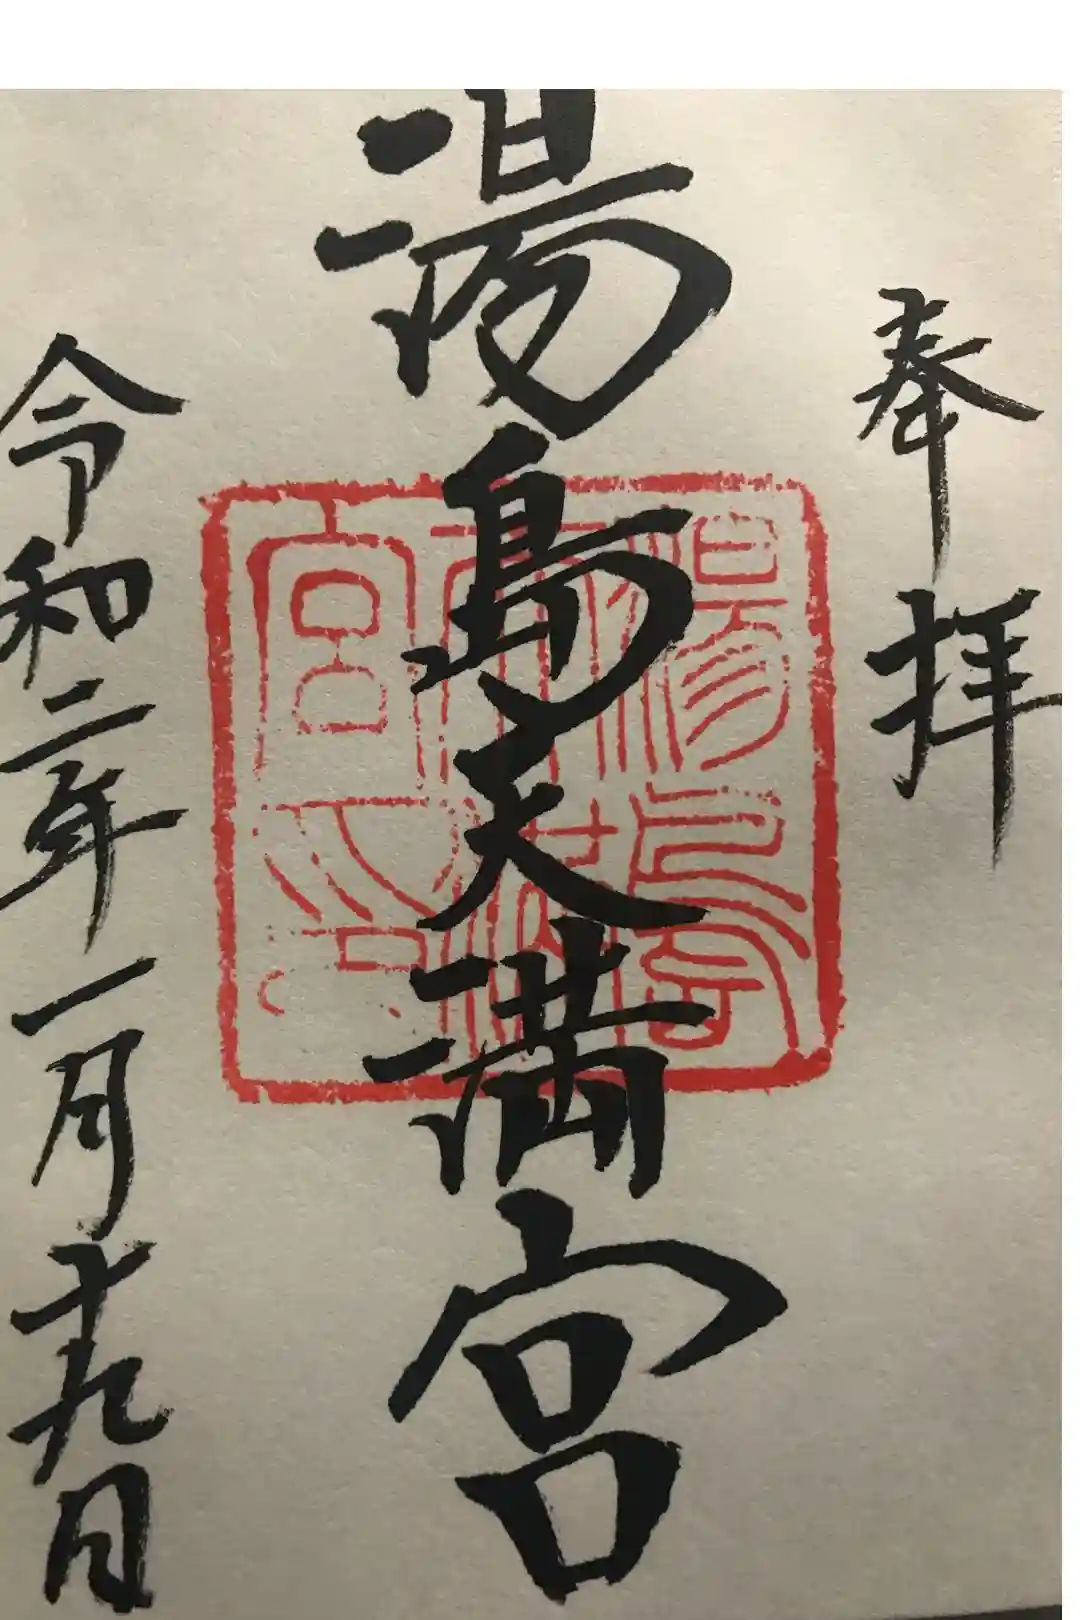 奉拝
湯島天満宮
湯島天満宮印
令和二年一月十九日